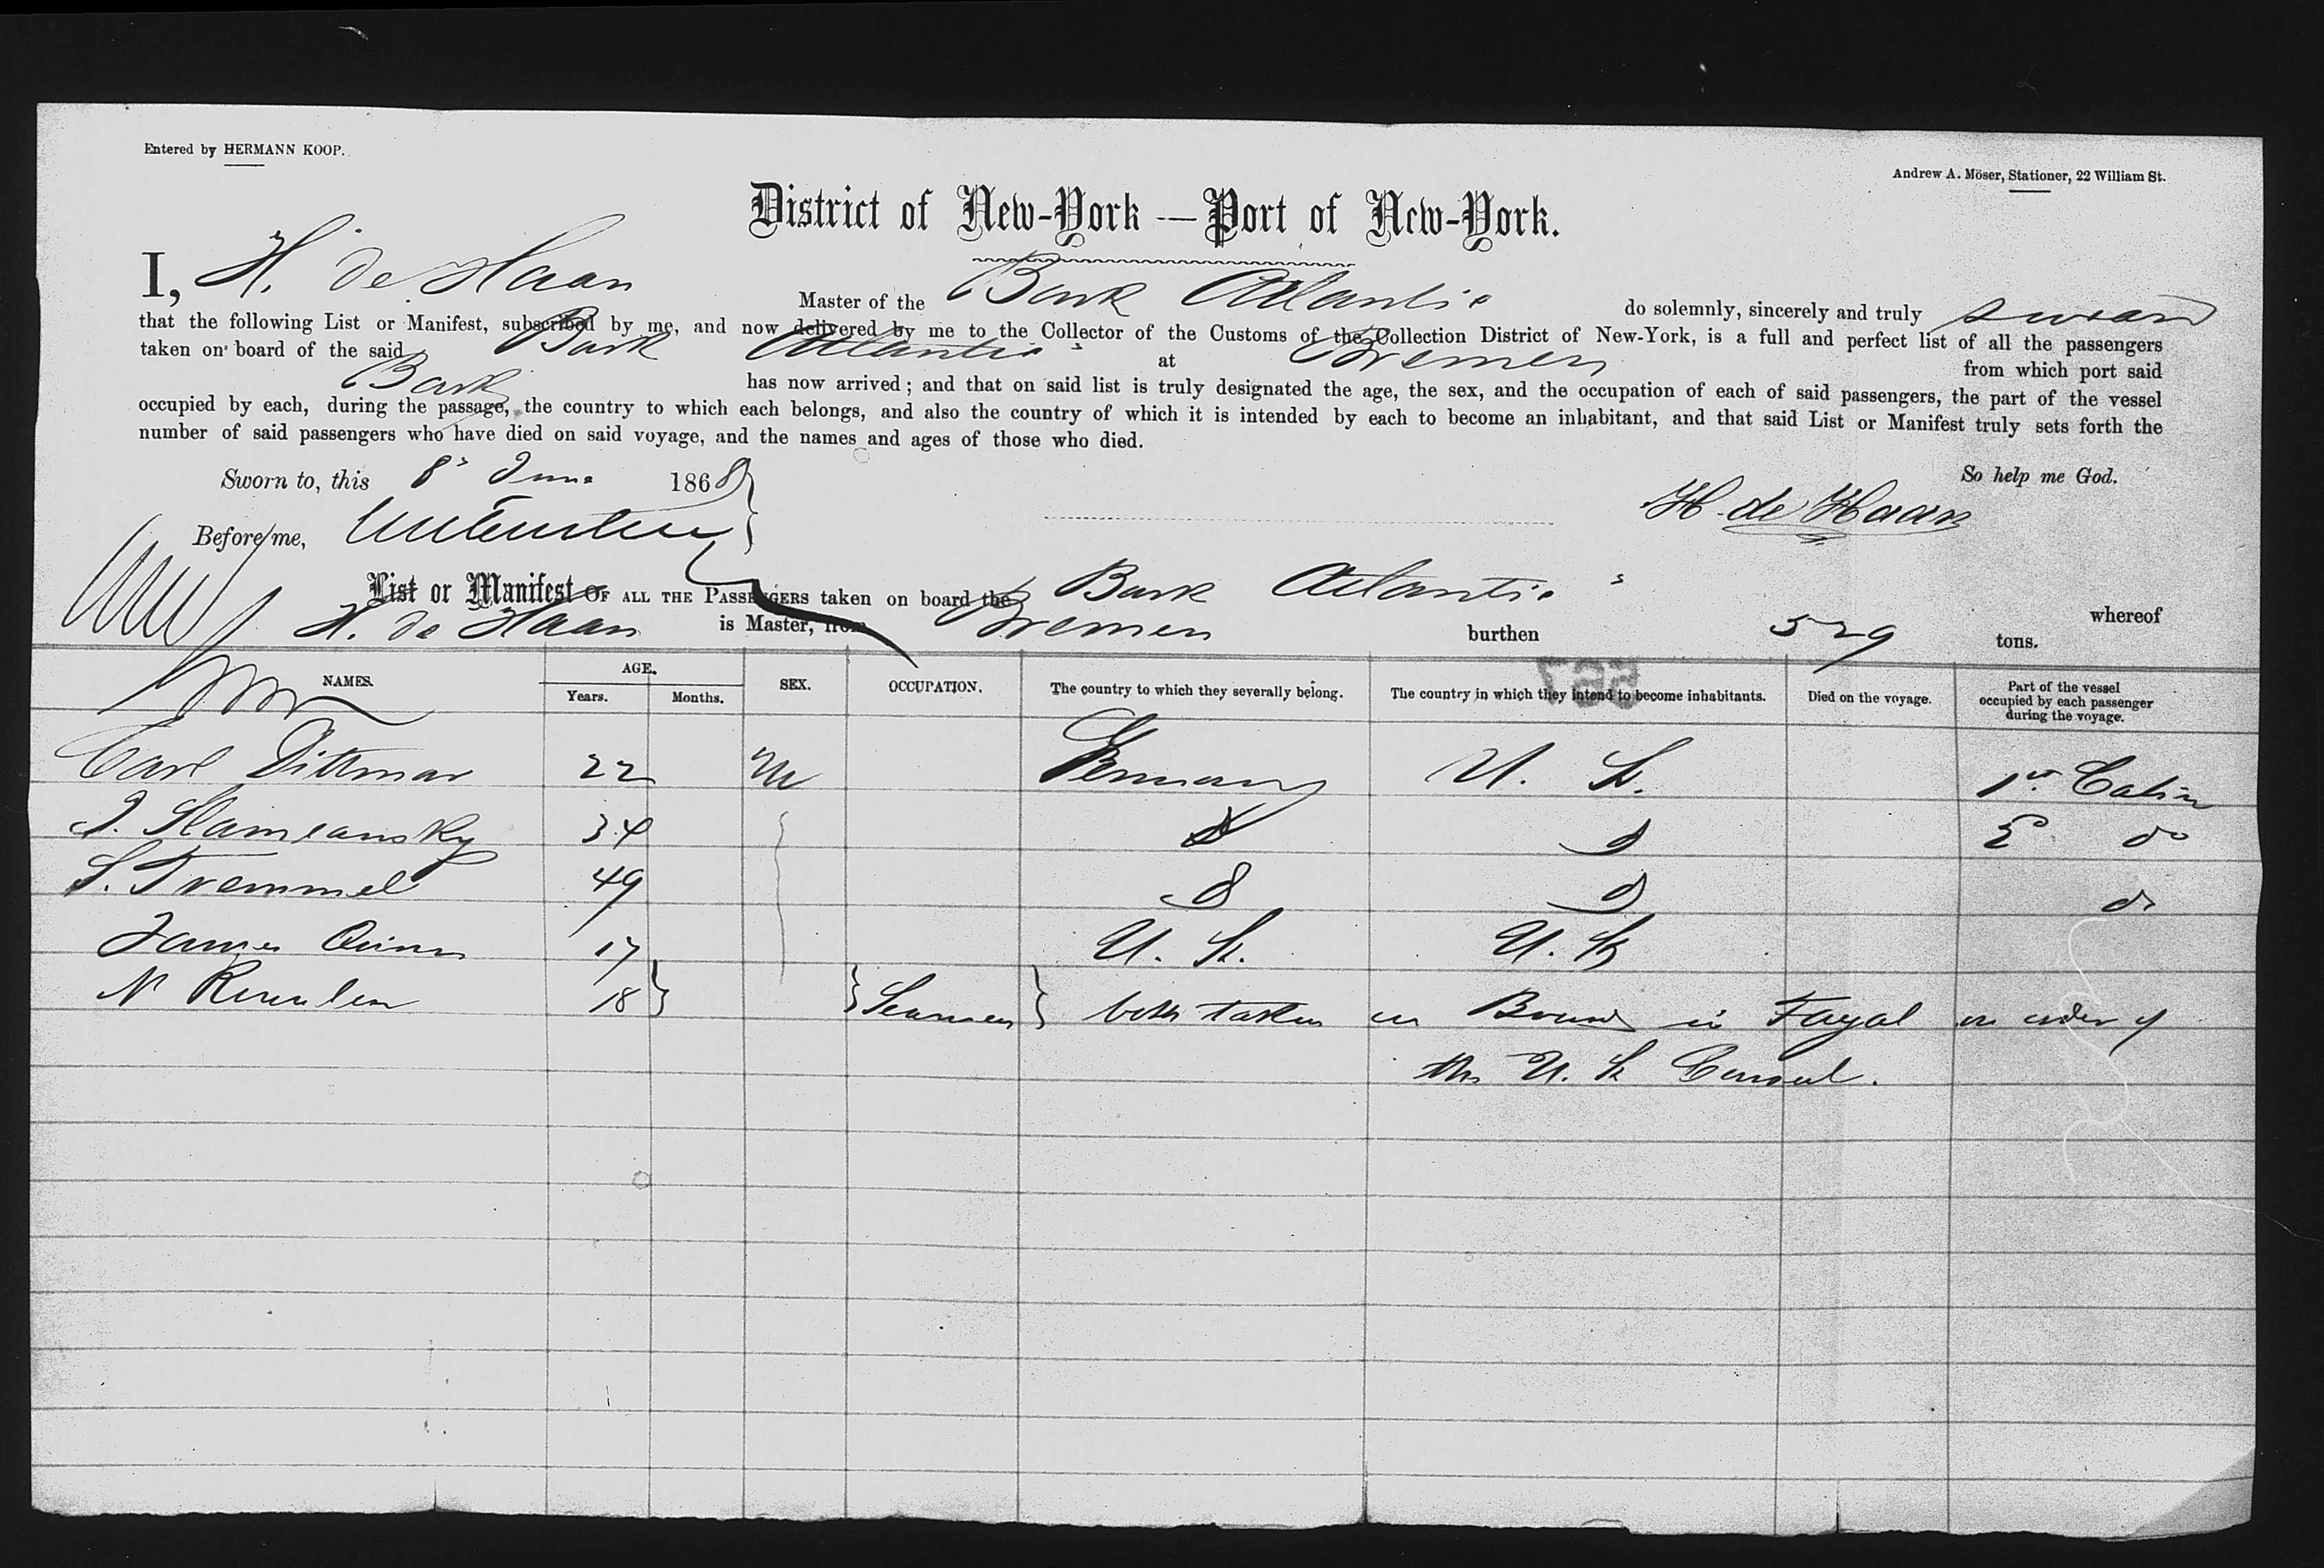 Entered by HERMANN KOOP.
Andrew A. Möser, Stationer, 22 William St.
District of New-York — Port of New-York.
I, H. de Haan Master of the Bark Atlantic do solemnly, sincerely and truly swear
that the following List or Manifest, subscribed by me, and now delivered by me to the Collector of the Customs of the Collection District of New-York, is a full and perfect list of all the passengers
taken on board of the said Bark Atlantic at Bremen from which port said
Bark has now arrived; and that on said list is truly designated the age, the sex, and the occupation of each of said passengers, the part of the vessel
occupied by each, during the passage, the country to which each belongs, and also the country of which it is intended by each to become an inhabitant, and that said List or Manifest truly sets forth the
number of said passengers who have died on said voyage, and the names and ages of those who died.
Sworn to, this 8 June 1868 So help me God.
Before me, H. de Haan
List or Manifest OF ALL THE PASSENGERS taken on board the Bark Atlantic whereof
H. de Haan is Master, from Bremen burthen 529 tons.
NAMES. AGE. Years. Months. SEX. OCCUPATION. The country to which they severally belong. The country in which they intend to become inhabitants. Died on the voyage. Part of the vessel occupied by each passenger during the voyage.
557
Carl Dittmar 22 M Germany U. S. 1st Cabin
34 do
S. Tremmel 49 do
James Quinn 17 U. S. U. S
N 18 } } Seamen } both taken on Board in Fayal on order of
the U. S Consul.